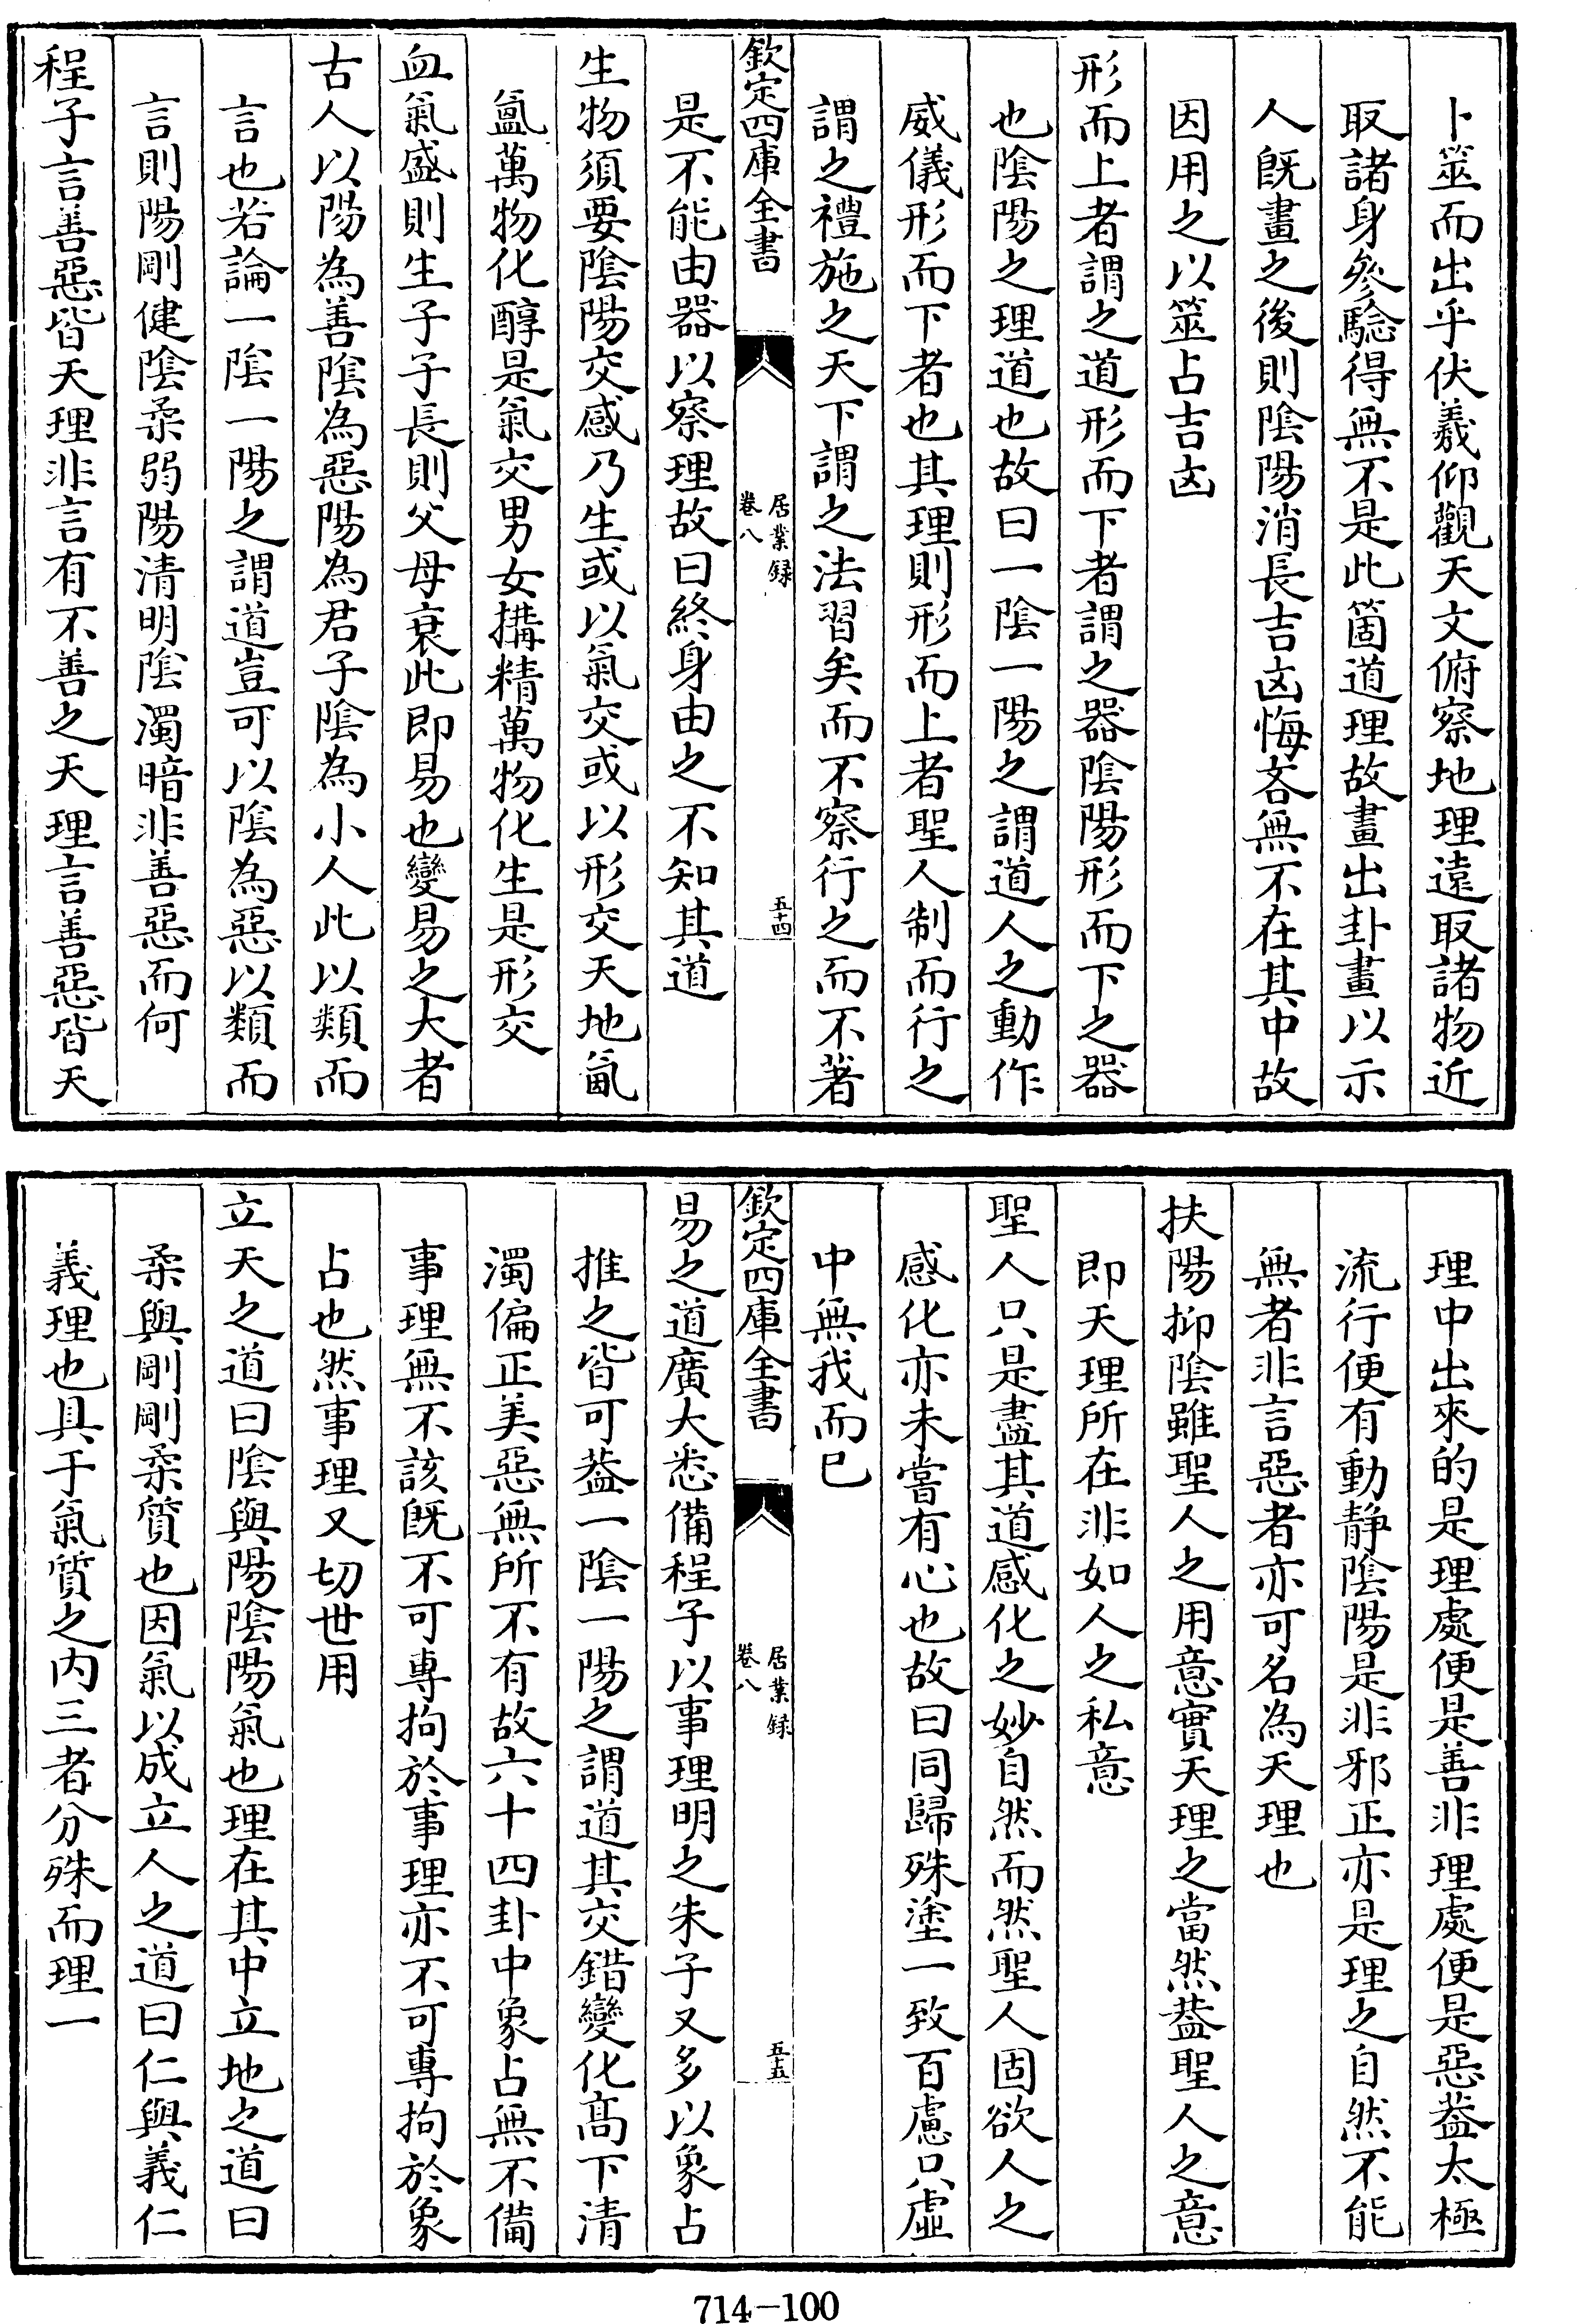 卜筮而出乎伏羲仰觀天文俯察地理遠取諸物近
取諸身參驗得無不是此箇道理故畫出卦畫以示
人既畫之後則陰陽消長吉凶悔吝無不在其中故
因用之以筮占吉凶
形而上者謂之道形而下者謂之器陰陽形而下之器
也陰陽之理道也故曰一陰一陽之謂道人之動作
威儀形而下者也其理則形而上者聖人制而行之
謂之禮施之天下謂之法習矣而不察行之而不著
欽定四庫全書
居業録
卷八
五十四
是不能由器以察理故曰終身由之不知其道
生物須要陰陽交感乃生或以氣交或以形交天地氤
氳萬物化醇是氣交男女搆精萬物化生是形交
血氣盛則生子子長則父母衰此即易也變易之大者
古人以陽為善陰為惡陽為君子陰為小人此以類而
言也若論一陰一陽之謂道豈可以陰為惡以類而
言則陽剛健陰柔弱陽清明陰濁暗非善惡而何
程子言善惡皆天理非言有不善之天理言善惡皆天
理中出來的是理處便是善非理處便是惡蓋太極
流行便有動靜陰陽是非邪正亦是理之自然不能
無者非言惡者亦可名為天理也
扶陽抑陰雖聖人之用意實天理之當然蓋聖人之意
即天理所在非如人之私意
聖人只是盡其道感化之妙自然而然聖人固欲人之
感化亦未嘗有心也故曰同歸殊塗一致百慮只虛
中無我而已
欽定四庫全書
居業録
卷八
五十五
易之道廣大悉備程子以事理明之朱子又多以象占
推之皆可蓋一陰一陽之謂道其交錯變化高下清
濁偏正美惡無所不有故六十四卦中象占無不備
事理無不該既不可專拘於事理亦不可專拘於象
占也然事理又切世用
立天之道曰陰與陽陰陽氣也理在其中立地之道曰
柔與剛剛柔質也因氣以成立人之道曰仁與義仁
義理也具于氣質之内三者分殊而理一
714-100